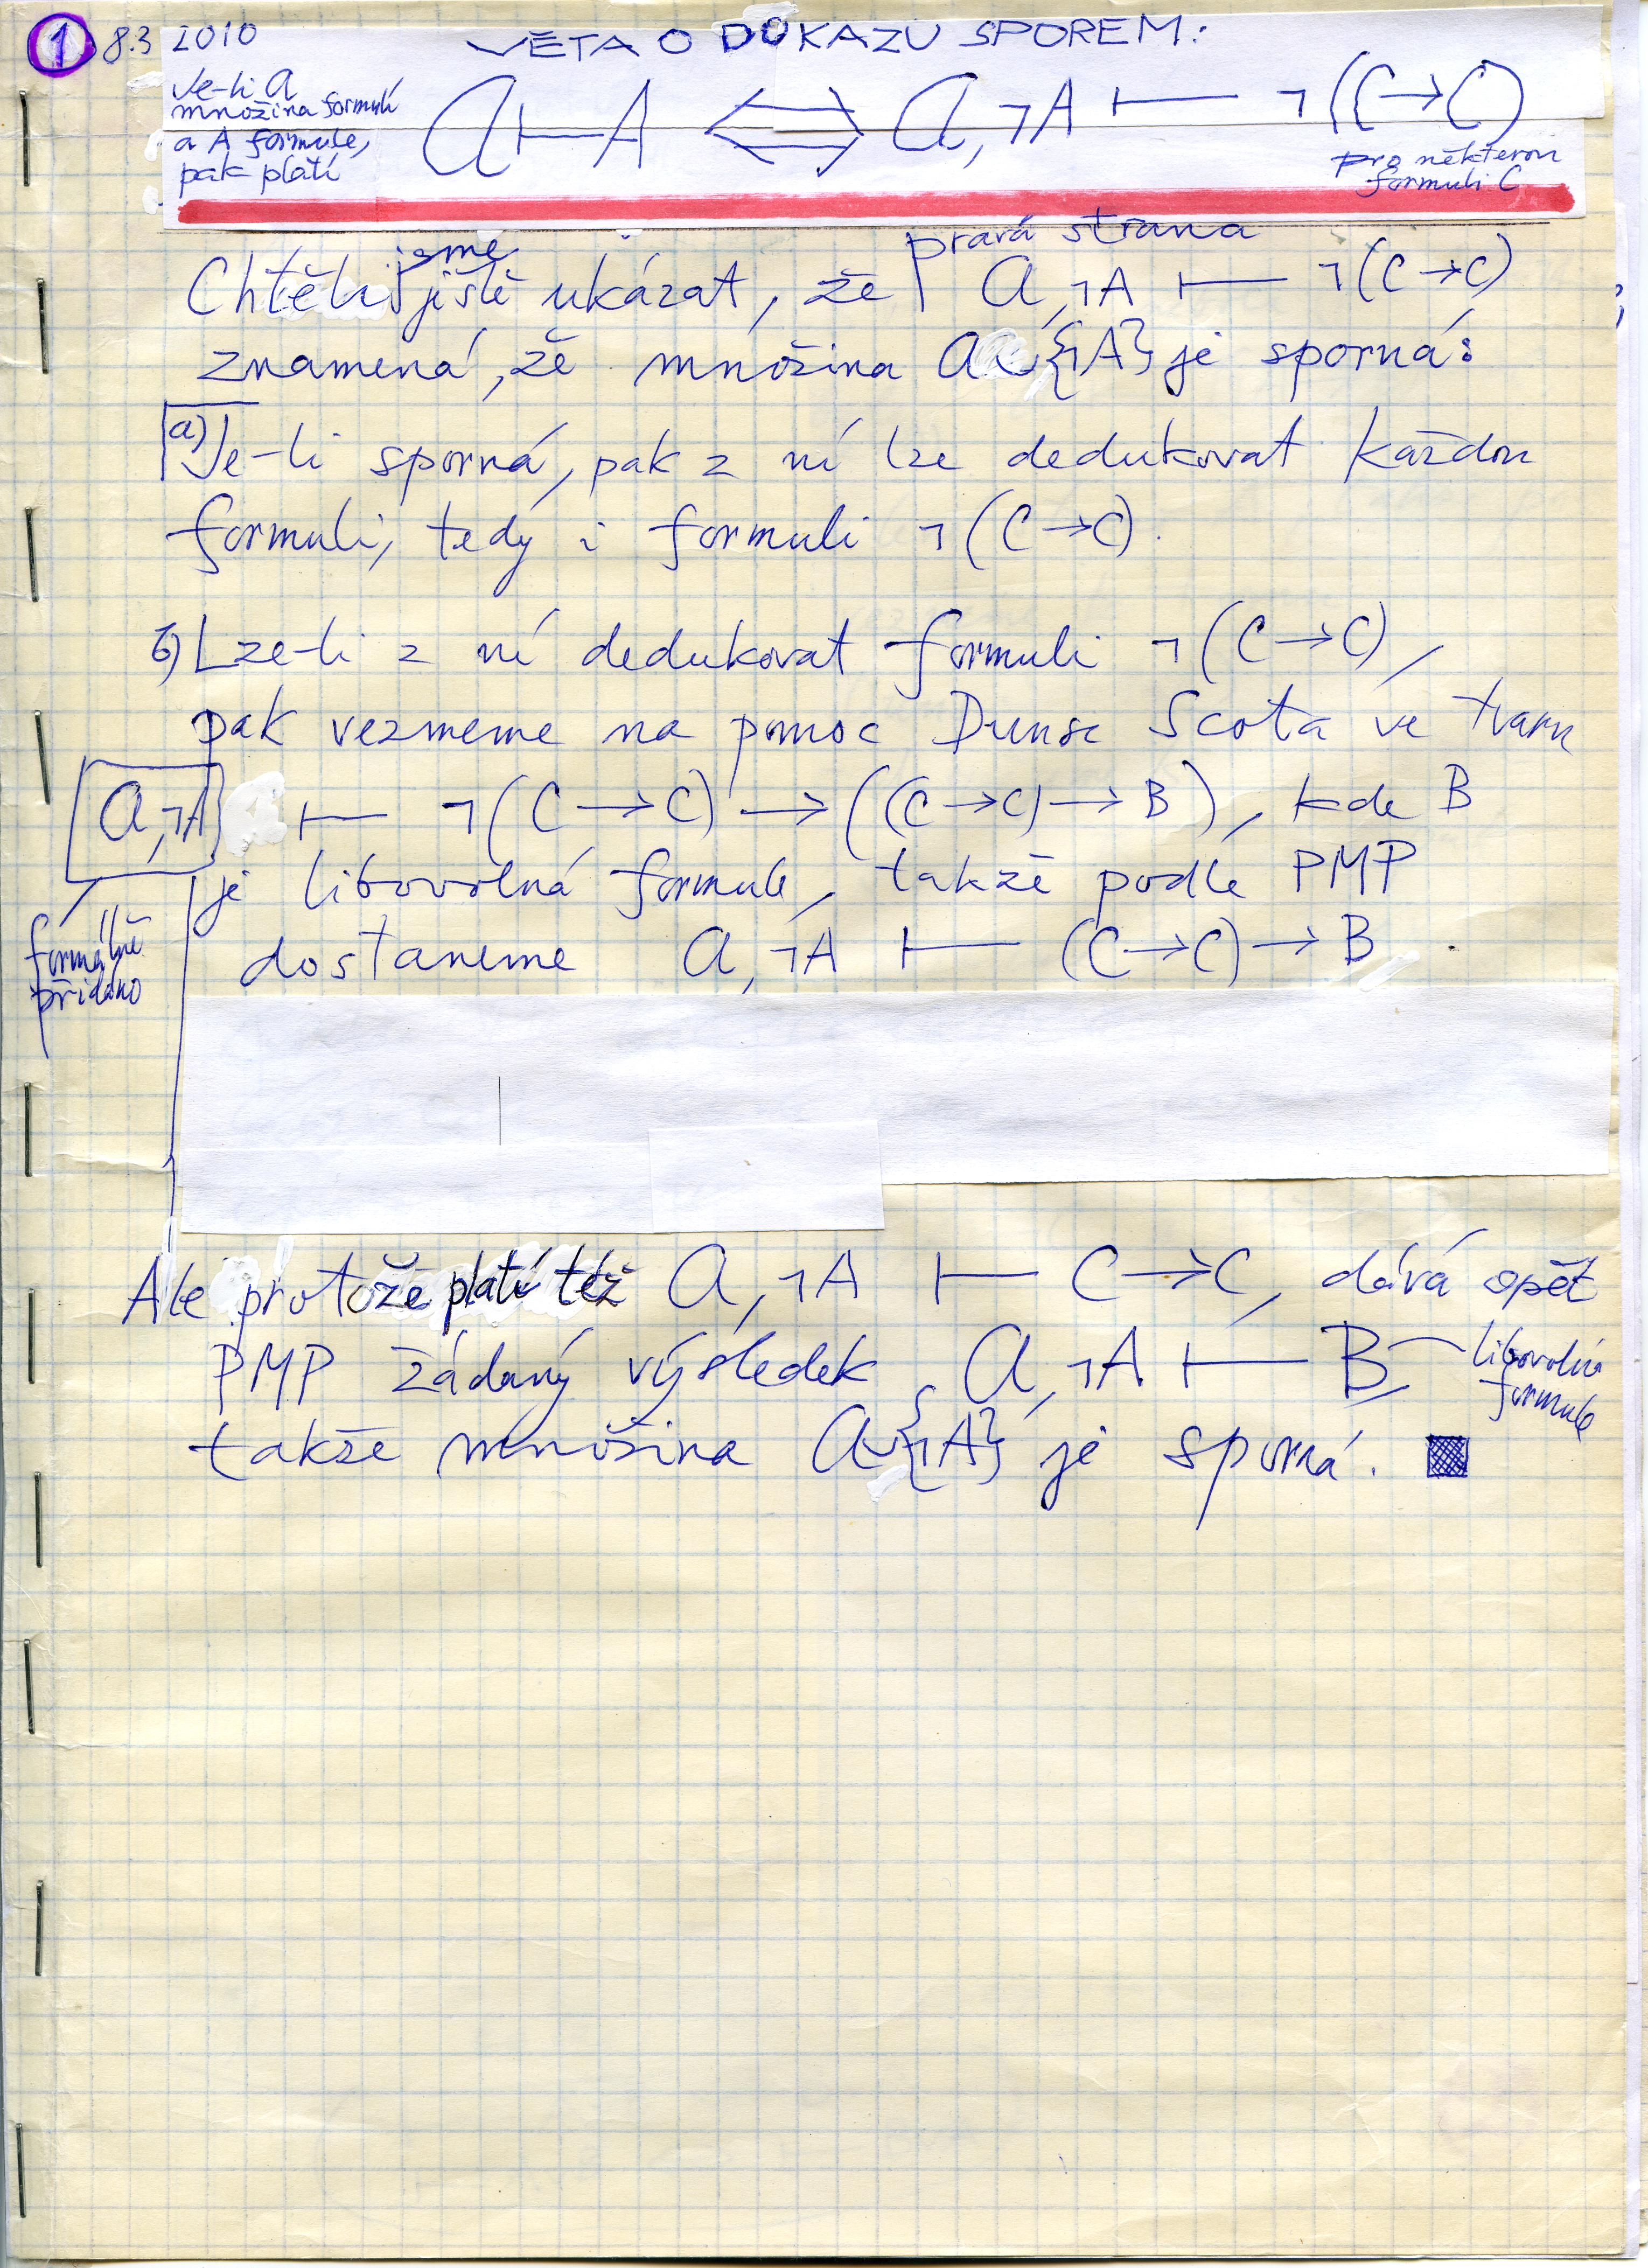 1 8.3 2010
VĚTA O DŮKAZU SPOREM:
Je-li 𝒜
množina formulí
a A formule,
pak platí
𝒜 ⊢ A ⟺ 𝒜, ¬A ⊢ ¬(C→C)
pro některou
formuli C
Chtěli jsme ještě ukázat, že pravá strana 𝒜, ¬A ⊢ ¬(C→C)
znamená, že množina 𝒜∪{¬A} je sporná:
a) Je-li sporná, pak z ní lze dedukovat každou
formuli, tedy i formuli ¬(C→C).
b) Lze-li z ní dedukovat formuli ¬(C→C),
pak vezmeme na pomoc Dunse Scota ve tvaru
𝒜, ¬A ⊢ ¬(C→C) → ((C→C)→B), kde B
je libovolná formule, takže podle PMP
formálně
přidáno
dostaneme 𝒜, ¬A ⊢ (C→C)→B.
Ale protože platí též 𝒜, ¬A ⊢ C→C, dává opět
PMP žádaný výsledek 𝒜, ¬A ⊢ B,
libovolná
formule
takže množina 𝒜∪{¬A} je sporná.